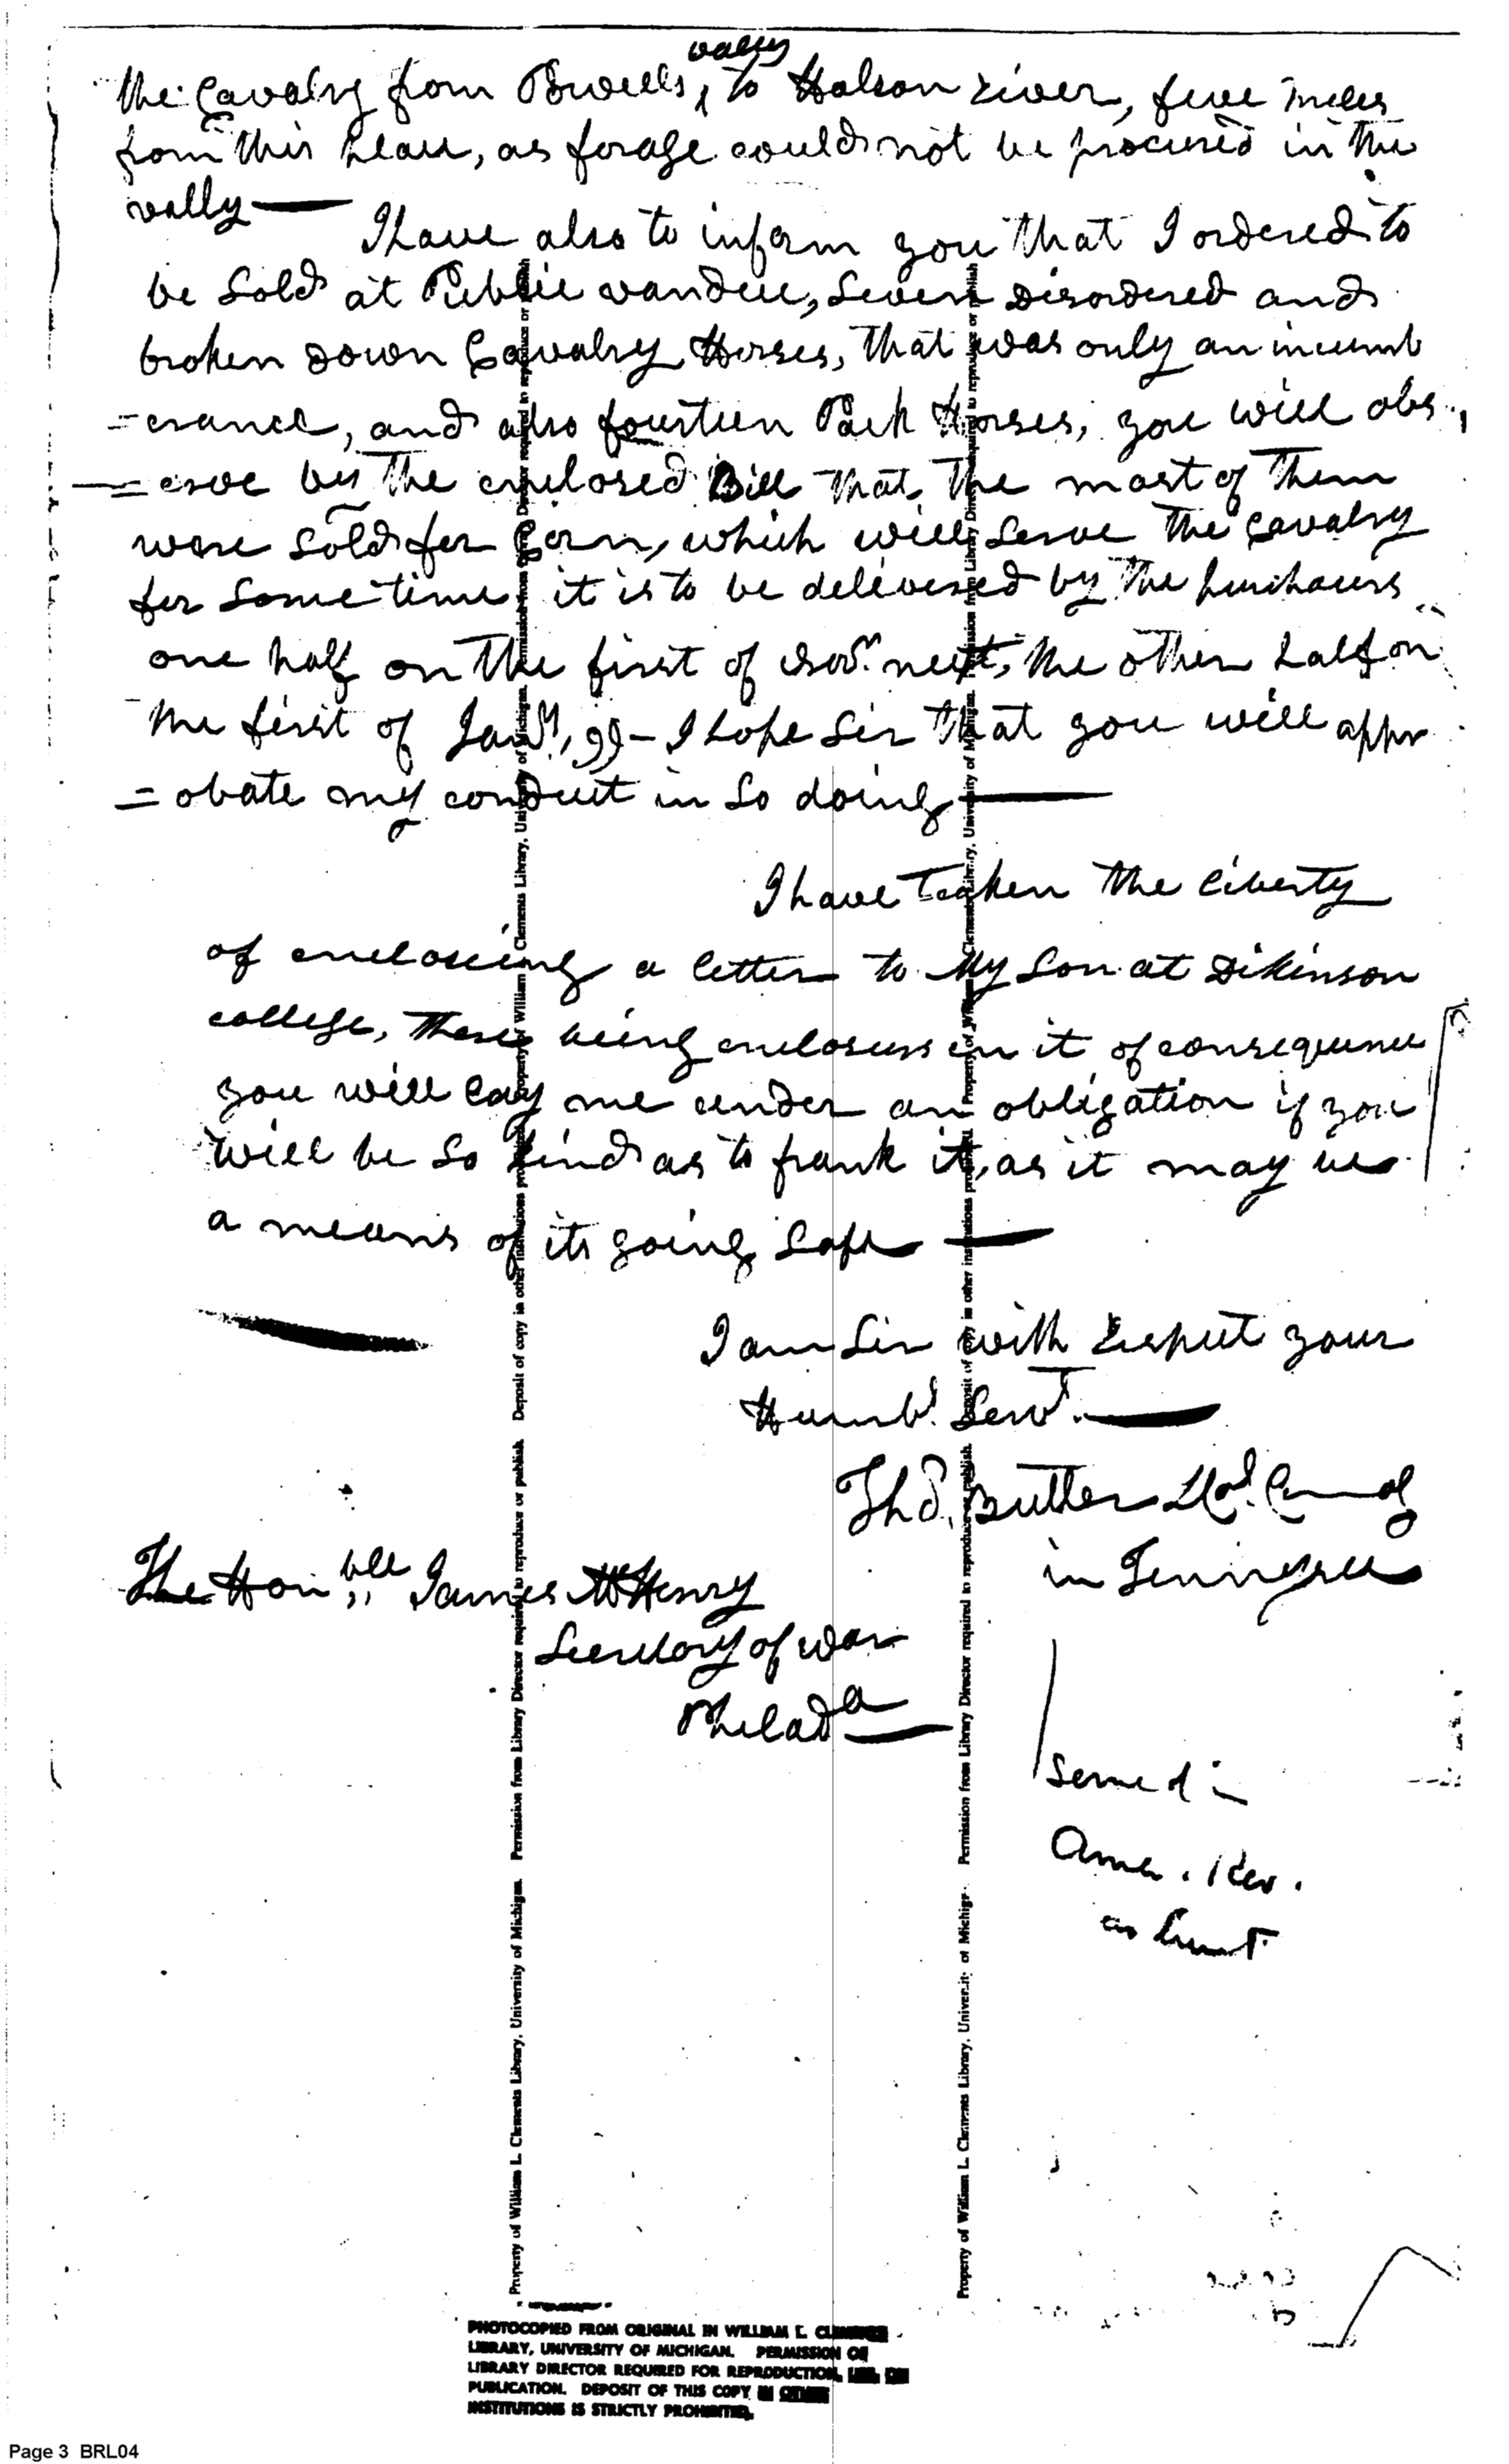 valley
the Cavalry from Powells ‸ to Holson River, five miles
from this place, as forage could not be procured in the
vally —
I have also to inform you that I ordered to
be Sold at Publie vandue, Seven Disordered and
broken down Cavalry Horses, that was only an incumb
=erance, and also fourteen Pack Horses, you will obs
=erve by the enclosed Bill that, the most of them
were Sold for Corn, which will Serve the Cavalry
for Some time it is to be delivered by the purchasers
one half on the first of Novr. next, the other half on
the first of Jany, 99 - I hope Sir that you will appr
=obate my conduct in So doing —
I have taken the liberty
of encloseing a letter to My Son at Dikinson
college, there being enclosures in it of consequence
you will lay me under an obligation if you
will be So kind as to frank it, as it may be
a means of its going Safe —
I am Sir with Respect your
Humbl. Servt. —
Thos. Butler Lt Col. Comd
in Tennessee
The Honble James McHenry
Secretary of War
Philada
Served in
Amer. Rev.
as Lieut
Property of William L. Clements Library, University of Michigan. Permission from Library Director required to reproduce or publish. Deposit of copy in other institutions prohibited. Property of William L. Clements Library, University of Michigan. Permission from Library Director required to reproduce or publish
Property of William L. Clements Library, University of Michigan. Permission from Library Director required to reproduce or publish. Deposit of copy in other institutions prohibited. Property of William L. Clements Library, University of Michigan. Permission from Library Director required to reproduce or publish
PHOTOCOPIED FROM ORIGINAL IN WILLIAM L. CLEMENTS
LIBRARY, UNIVERSITY OF MICHIGAN. PERMISSION OF
LIBRARY DIRECTOR REQUIRED FOR REPRODUCTION, USE, OR
PUBLICATION. DEPOSIT OF THIS COPY IN OTHER
INSTITUTIONS IS STRICTLY PROHIBITED.
Page 3 BRL04